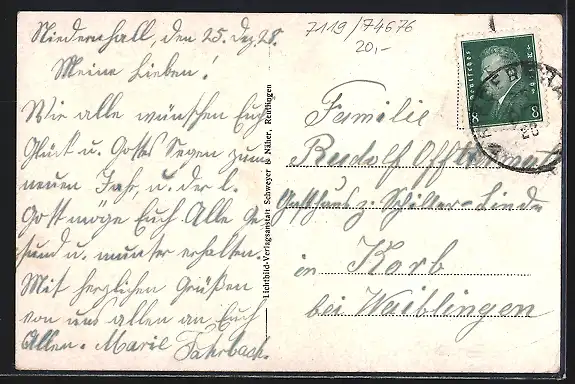 Niedernhall, den 25. Dez. 28.
Meine Lieben!
Wir alle wünschen Euch
Glück u. Gottes Segen zum
neuen Jahr, u. der l.
Gott möge Euch Alle ge-
sund u. munter erhalten.
Mit herzlichen Grüßen
von uns allen an Euch
Allen. Marie Fahrbach.
Lichtbild-Verlagsanstalt Schweyer & Näher, Reutlingen
7119/74676
20,-
Deutsches Reich
8 8
Familie
Rudolf
Gasthaus z. Schiller-Linde
in Korb
bei Waiblingen